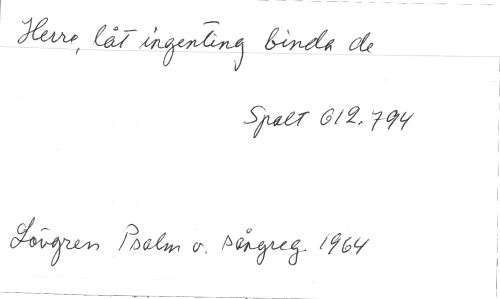 Herre, låt ingenting binda de
Spalt 612, 794
Lövgren Psalm o. sångreg. 1964